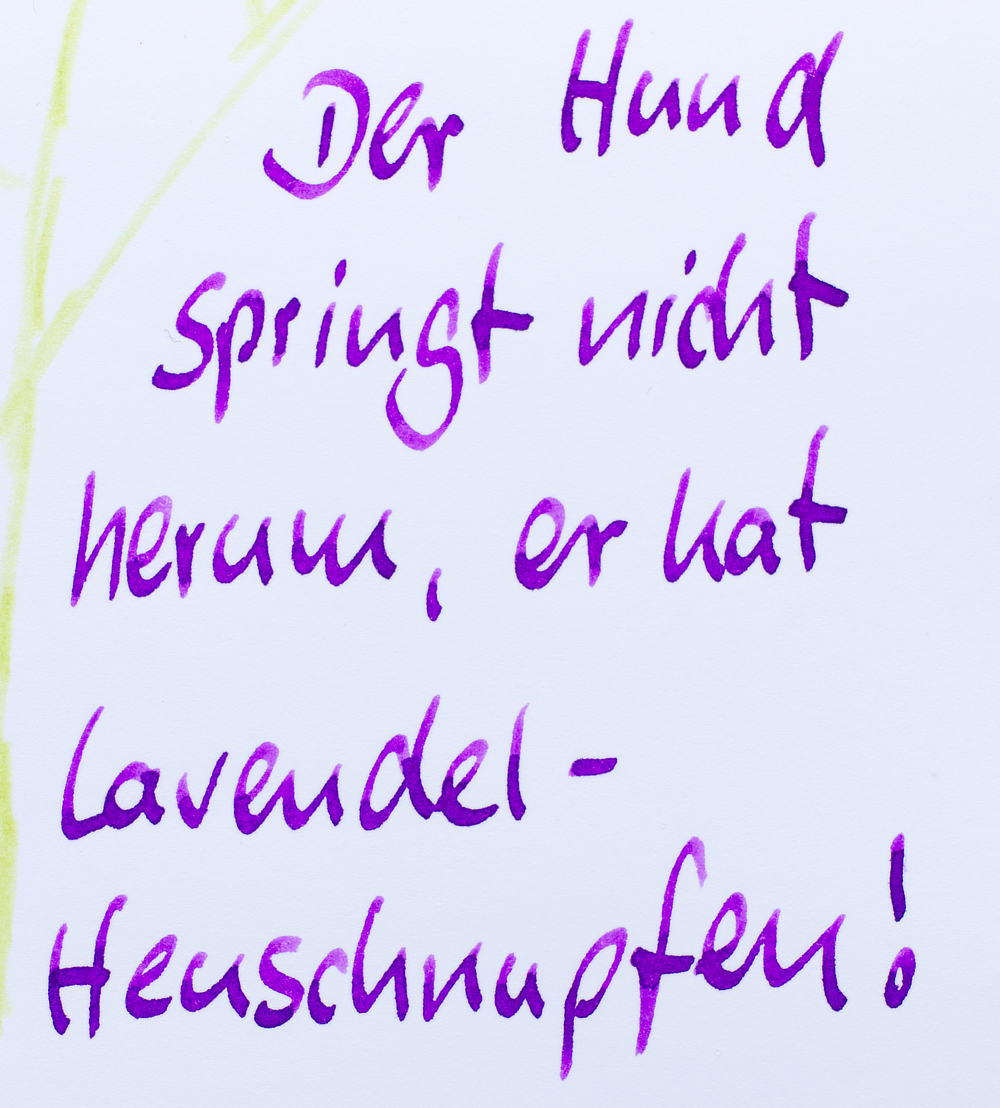 Der Hund
springt nicht
herum, er hat
Lavendel-
Heuschnupfen!